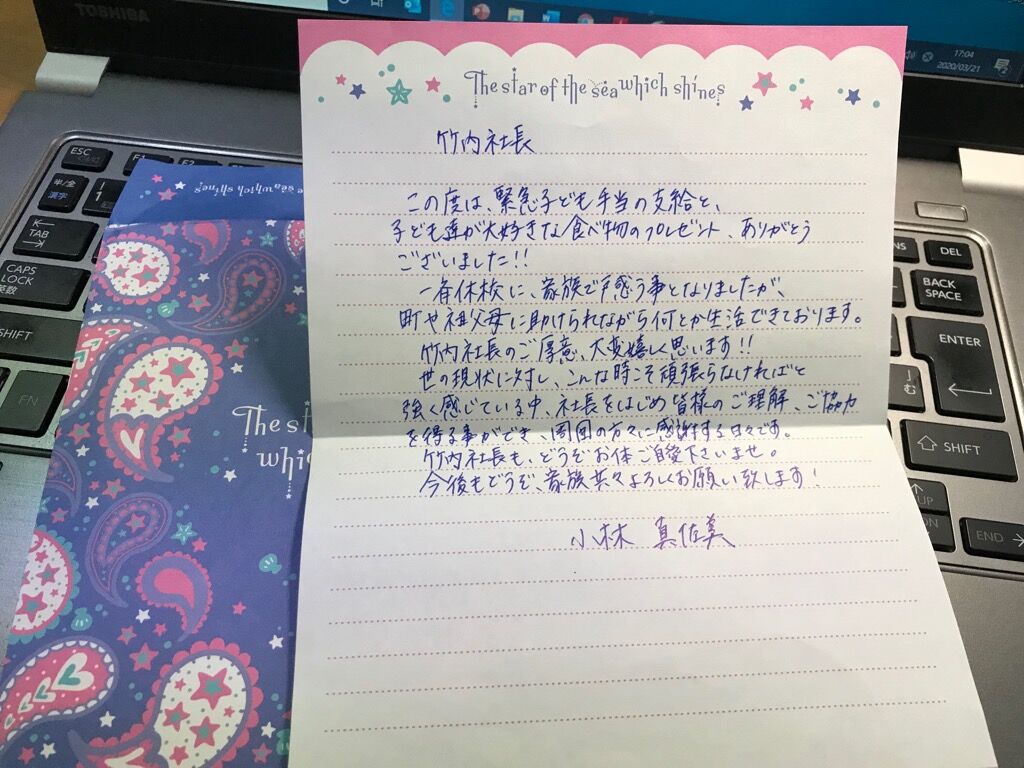 TOSHIBA
17:04
2020/03/21
The star of the sea which shines
竹内社長
この度は、緊急子ども手当の支給と、
子ども達が大好きな食べ物のプレゼント、ありがとう
ございました!!
一斉休校に、家族で戸惑う事となりましたが、
町や祖父母に助けられながら何とか生活できております。
竹内社長のご厚意、大変嬉しく思います!!
世の現状に対し、こんな時こそ頑張らなければと
強く感じている中、社長をはじめ皆様のご理解、ご協力
を得る事ができ、周囲の方々に感謝する日々です。
竹内社長も、どうぞお体ご自愛下さいませ。
今後もどうぞ、家族共々よろしくお願い致します!
小林 真佐美
ESC
F1
半/全
漢字
!
1
TAB
CAPS
LOCK
英数
SHIFT
FN
DEL
BACK
SPACE
ENTER
む
SHIFT
UP
END
e sea which shines
The st
whic